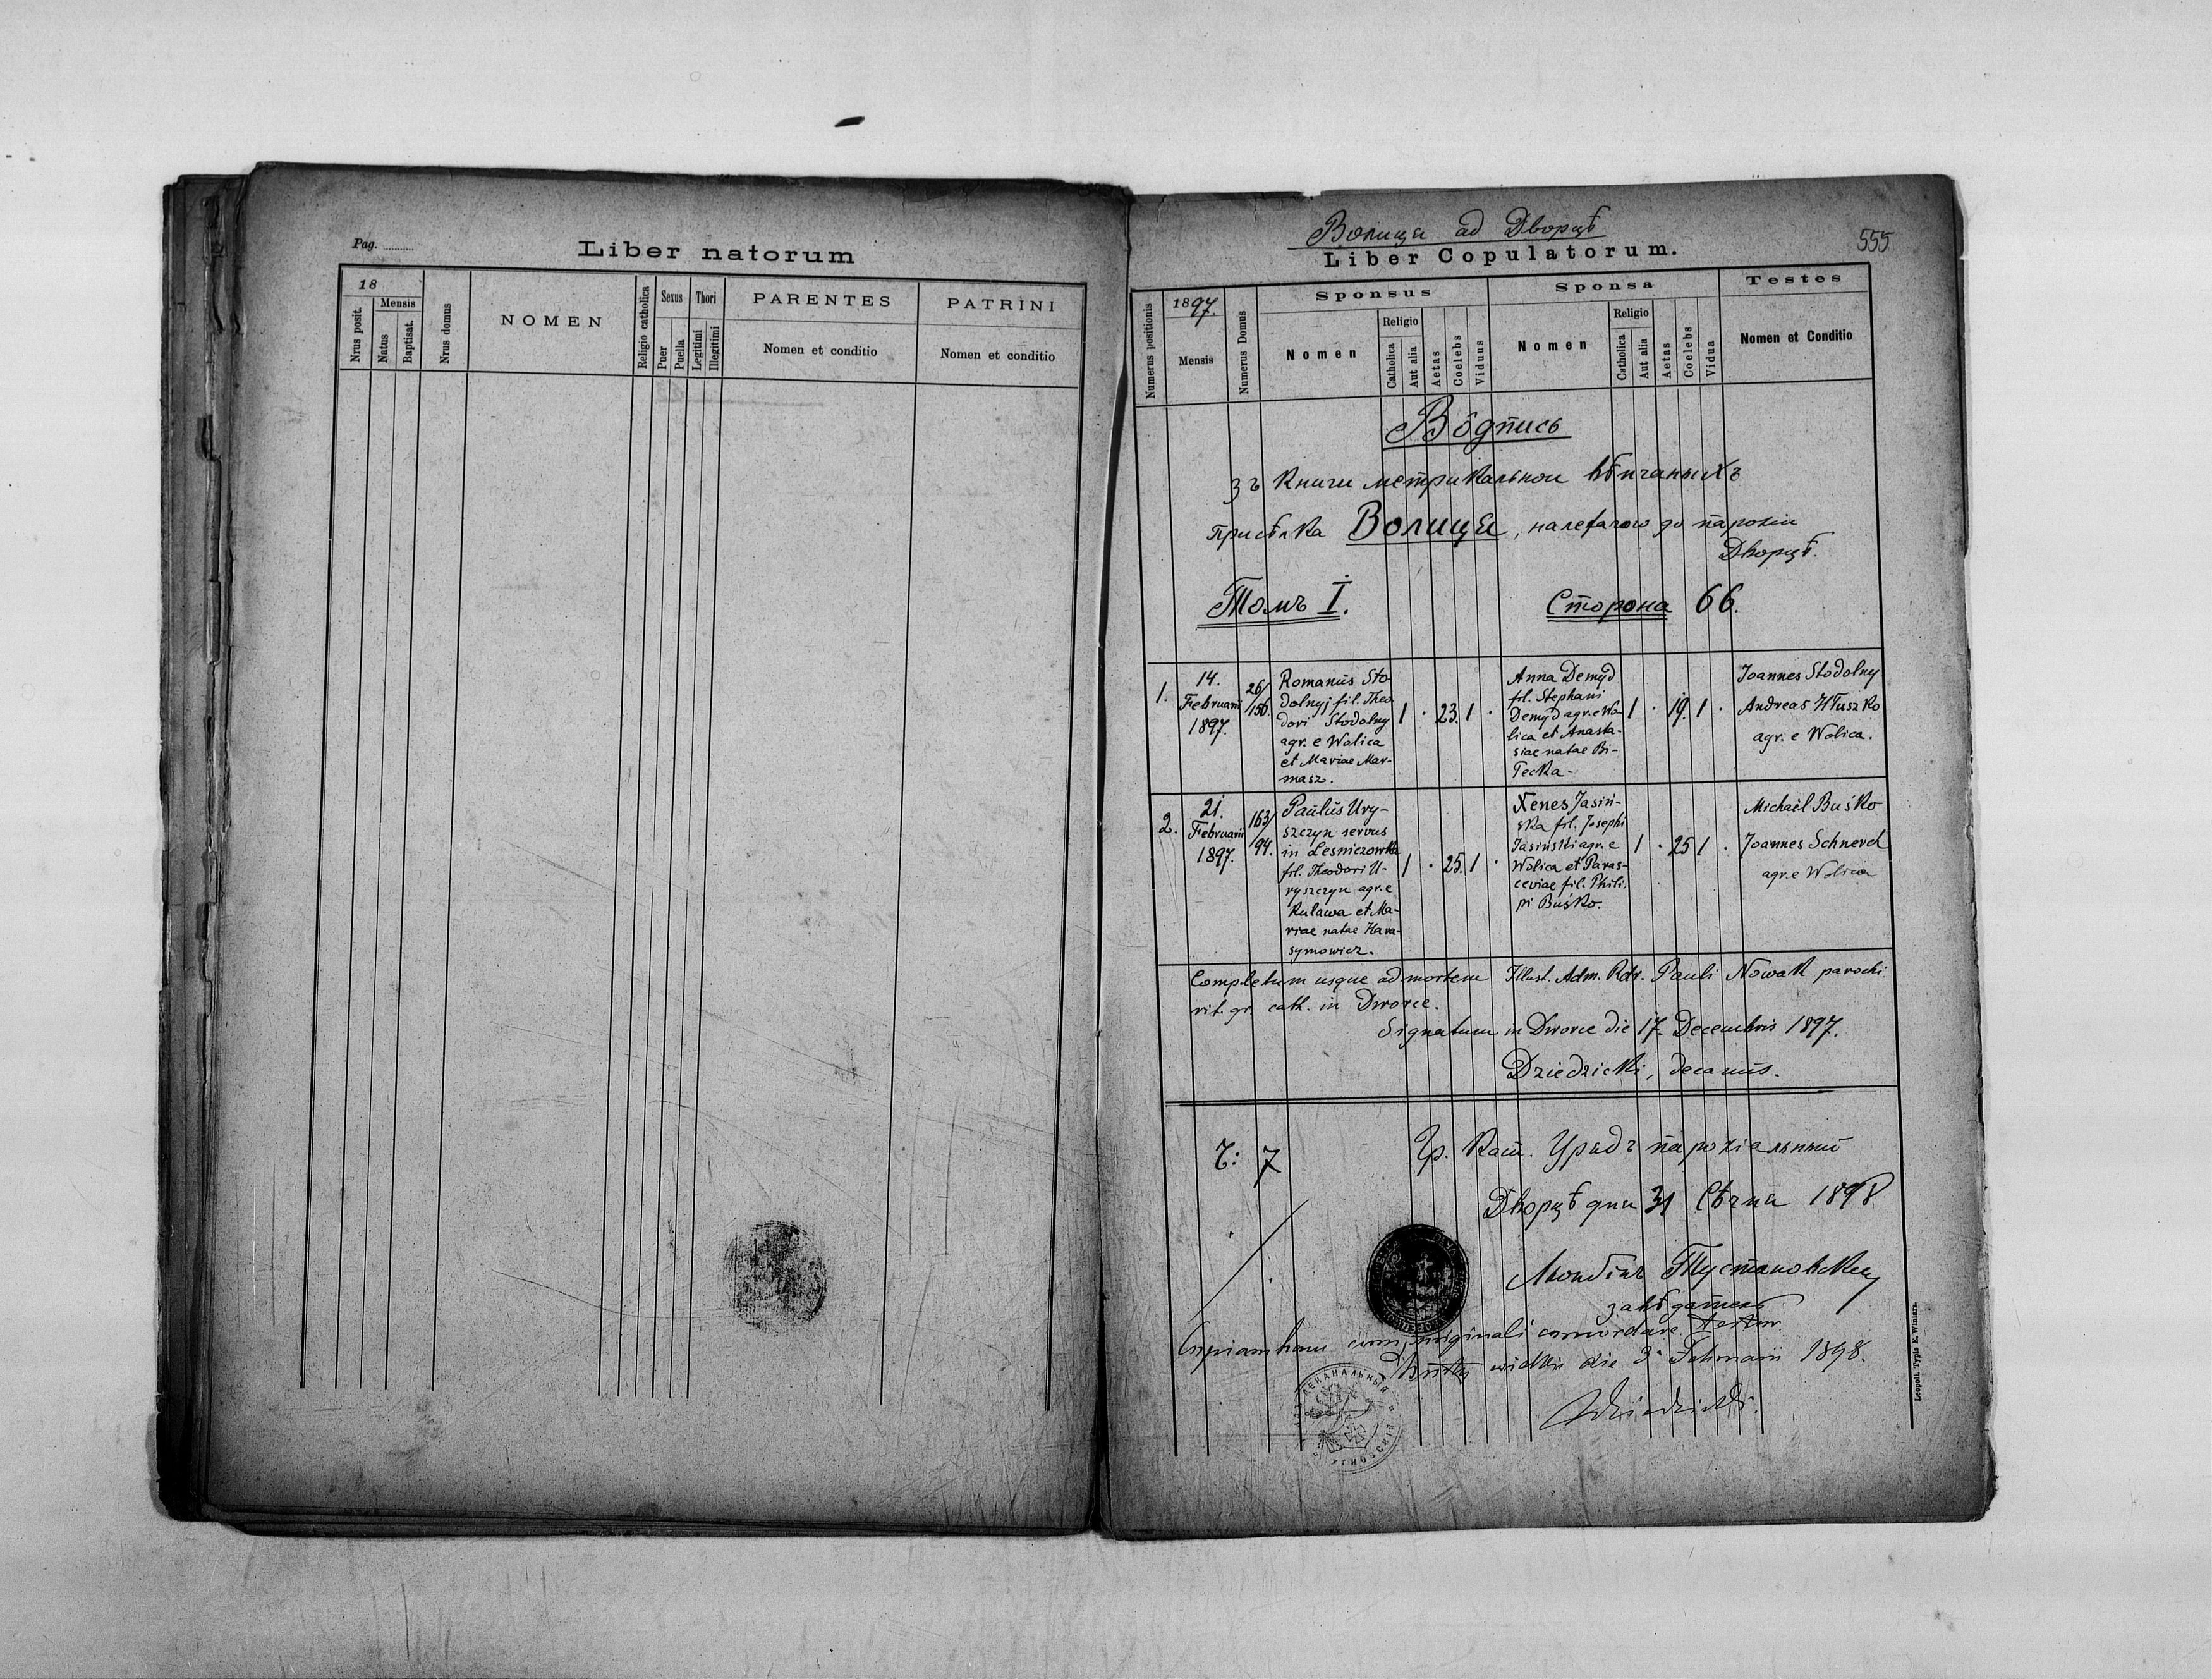 Pag.
Liber natorum
18
Nrus posit.
Mensis
Natus
Baptisat.
Nrus domus
NOMEN
Religio catholica
Sexus
Puer
Puella
Thori
Legitimi
Illegitimi
PARENTES
Nomen et conditio
PATRINI
Nomen et conditio
Волиця ad Дворцѣ
555
Liber Copulatorum.
Numerus positionis
1897.
Mensis
Numerus Domus
Sponsus
Nomen
Religio
Catholica
Aut alia
Aetas
Coelebs
Viduus
Sponsa
Nomen
Religio
Catholica
Aut alia
Aetas
Coelebs
Vidua
Testes
Nomen et Conditio
Вôдпись
зъ книги метрикальнои вѣнчанныхъ
присѣлка Волиця, належачого до парохіи
Дворцѣ.
Томъ I.
Сторона 66.
1.
14.
Februarii
1897.
26/
/156.
Romanus Sto-
dolnyj fil. Theo-
dori Stodolny
agr. e Wolica
et Mariae Mar-
masz.
1 . 23. 1 .
Anna Demyd
fil. Stephani
Demyd agr. e Wo-
lica et Anasta-
siae natae Bi-
łecka -
1 . 19. 1 .
Joannes Stodolny
Andreas Hłuszko
agr. e Wolica.
2.
21.
Februarii
1897.
163/
/94.
Paulus Ury-
szczyn servus
in Lesniczowka
fil. Theodori U-
ryszczyn agr. e
Kulawa et Ma-
riae natae Hara-
symowicz.
1 . 25. 1 .
Xenes Jasiń-
ska fil. Josephi
Jasiński agr. e
Wolica et Paras-
ceviae fil. Phili-
pi Buśko.
1 . 25 1 .
Michaël Buśko
Joannes Schnerch
agr. e Wolica
Completum usque ad mortem Illust. Adm. Rdr. Pauli Nowak parochi
rit. gr. cath. in Dworce.
Signatum in Dworce die 17. Decembris 1897.
Dziedzicki, decanus.
Ч: 7
Гр. кат. Урядъ парохіальный
Дворцѣ дня 31 Сѣчня 1898
Тустановскій
завѣдатель
Copiam hanc cum originali concordare testor
die 3 Februarii 1898.
Dziedzicki.
ДЕКАНАЛЬНЫЙ
Leopoli. Typis E. Winiarz.